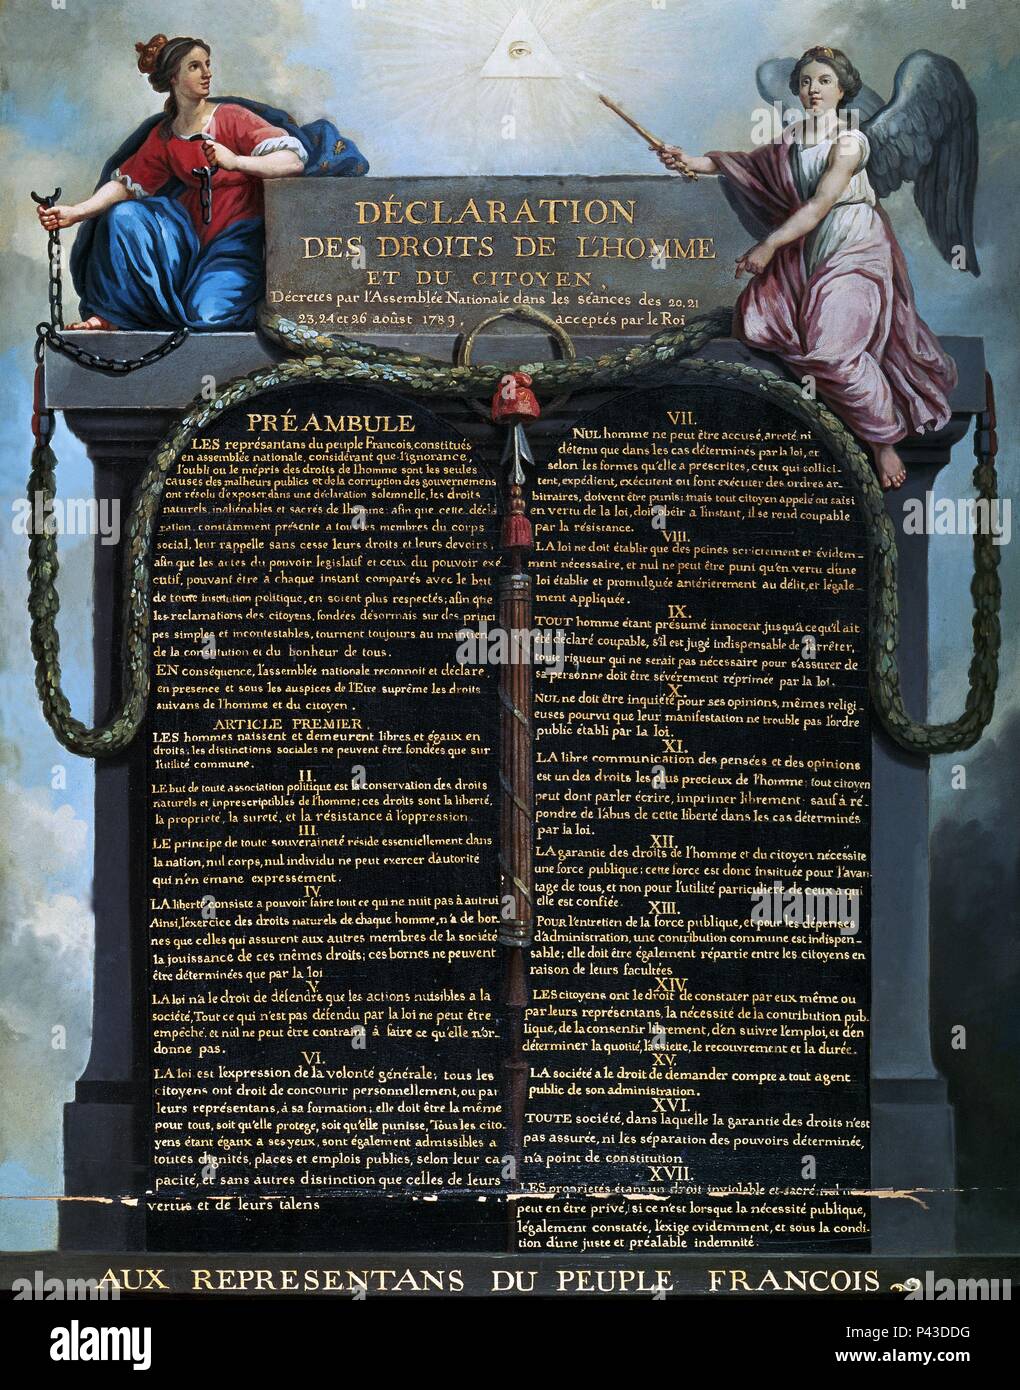 DÉCLARATION
DES DROITS DE L'HOMME
ET DU CITOYEN,
Décretés par l'Assemblée Nationale dans les séances des 20, 21
23, 24 et 26 août 1789, acceptés par le Roi
PRÉAMBULE
LES représantans du peuple Francois, constitués
en assemblée nationale, considérant que l'ignorance,
l'oubli ou le mépris des droits de l'homme sont les seules
causes des malheurs publics et de la corruption des gouvernemens
ont résolu d'exposer dans une déclaration solemnelle, les droits
naturels, inaliénables et sacrés de l'homme; afin que cette décla
ration, constamment présente a tous les membres du corps
social, leur rappelle sans cesse leurs droits et leurs devoirs;
afin que les actes du pouvoir legislatif et ceux du pouvoir exé
cutif, pouvant être à chaque instant comparés avec le but
de toute institution politique, en soient plus respectés; afin que
les reclamations des citoyens, fondées désormais sur des princi
pes simples et incontestables, tournent toujours au maintien
de la constitution et du bonheur de tous.
EN conséquence, l'assemblée nationale reconnoit et déclare,
en presence et sous les auspices de l'Etre suprême les droits
suivans de l'homme et du citoyen.
ARTICLE PREMIER.
LES hommes naissent et demeurent libres et égaux en
droits; les distinctions sociales ne peuvent être fondées que sur
l'utilité commune.
II.
LE but de toute association politique est la conservation des droits
naturels et inprescriptibles de l'homme; ces droits sont la liberté,
la propriété, la sureté, et la résistance à l'oppression.
III.
LE principe de toute souveraineté réside essentiellement dans
la nation, nul corps, nul individu ne peut exercer d'autorité
qui n'en émane expressement.
IV.
LA liberté consiste a pouvoir faire tout ce qui ne nuit pas à autrui
Ainsi, l'exercice des droits naturels de chaque homme, n'a de bor-
nes que celles qui assurent aux autres membres de la société
la jouissance de ces mêmes droits; ces bornes ne peuvent
être déterminées que par la loi
V.
LA loi n'a le droit de défendre que les actions nuisibles a la
société, Tout ce qui n'est pas défendu par la loi ne peut être
empêché, et nul ne peut être contraint à faire ce qu'elle n'or-
donne pas.
VI.
LA loi est l'expression de la volonté générale; tous les
citoyens ont droit de concourir personnellement, ou par
leurs représentans, à sa formation; elle doit être la même
pour tous, soit qu'elle protege, soit qu'elle punisse, Tous les cito-
yens étant égaux a ses yeux, sont également admissibles a
toutes dignités, places et emplois publics, selon leur ca
pacité, et sans autres distinction que celles de leurs
vertus et de leurs talens
VII.
NUL homme ne peut être accusé, arreté, ni
détenu que dans les cas déterminés par la loi, et
selon les formes qu'elle a prescrites, ceux qui sollici-
tent, expédient, exécutent ou font exécuter des ordres ar-
bitraires, doivent être punis; mais tout citoyen appelé ou saisi
en vertu de la loi, doit obéir a l'instant, il se rend coupable
par la résistance.
VIII.
LA loi ne doit établir que des peines strictement et évidem-
ment nécessaire, et nul ne peut être puni qu'en vertu d'une
loi établie et promulguée antérierement au délit, et légale-
ment appliquée.
IX.
TOUT homme étant présumé innocent jusqu'à ce qu'il ait
été déclaré coupable, s'il est jugé indispensable de l'arrêter,
toute rigueur qui ne serait pas nécessaire pour s'assurer de
sa personne doit être sévèrement réprimée par la loi.
X.
NUL ne doit être inquiété pour ses opinions, mêmes religi-
euses pourvu que leur manifestation ne trouble pas l'ordre
public établi par la loi.
XI.
LA libre communication des pensées et des opinions
est un des droits les plus precieux de l'homme; tout citoyen
peut dont parler écrire, imprimer librement: sauf à ré-
pondre de l'abus de cette liberté dans les cas déterminés
par la loi.
XII.
LA garantie des droits de l'homme et du citoyen nécessite
une force publique; cette force est donc instituée pour l'avan-
tage de tous, et non pour l'utilité particulière de ceux a qui
elle est confiée.
XIII.
POUR l'entretien de la force publique, et pour les dépenses
d'administration, une contribution commune est indispen-
sable; elle doit être également répartie entre les citoyens en
raison de leurs facultées
XIV.
LES citoyens ont le droit de constater par eux même ou
par leurs représentans, la nécessité de la contribution pub-
lique, de la consentir librement, d'en suivre l'emploi, et d'en
déterminer la quotité, l'assiette, le recouvrement et la durée.
XV.
LA société a le droit de demander compte a tout agent
public de son administration.
XVI.
TOUTE société, dans laquelle la garantie des droits n'est
pas assurée, ni les séparation des pouvoirs déterminée,
n'a point de constitution
XVII.
LES proprietés étant un droit inviolable et sacré, nul ne
peut en être privé, si ce n'est lorsque la nécessité publique,
légalement constatée, l'exige evidemment, et sous la condi-
tion d'une juste et préalable indemnité.
AUX REPRESENTANS DU PEUPLE FRANCOIS
alamy
Image ID: P43DDG
www.alamy.com